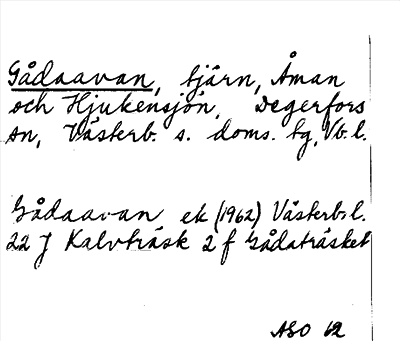 Gådaavan, tjärn, Åman
och Hjukensjön, Degerfors
sn, Västerb. s. doms. tg, Vb.l.
Gådaavan ek (1962) Västerb.l.
22 J Kalvträsk 2 f Gådaträsket
ASO 62